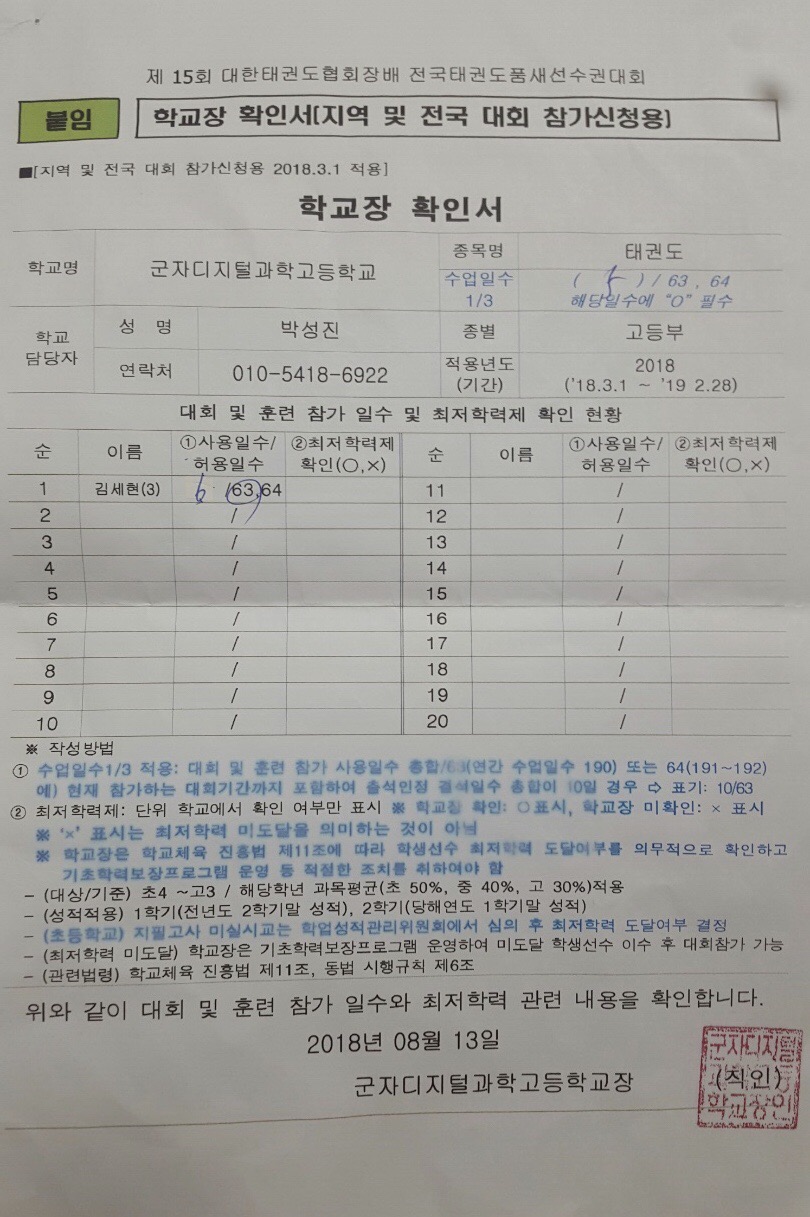 제 15회 대한태권도협회장배 전국태권도품새선수권대회
붙임 학교장 확인서(지역 및 전국 대회 참가신청용)
■[지역 및 전국 대회 참가신청용 2018.3.1 적용]
학교장 확인서
학교명 군자디지털과학고등학교 종목명 태권도
수업일수 1/3 ( ) / 63 , 64
해당일수에 "O" 필수
학교 담당자 성 명 박성진 종별 고등부
연락처 010-5418-6922 적용년도 (기간) 2018 ('18.3.1 ~ '19 2.28)
대회 및 훈련 참가 일수 및 최저학력제 확인 현황
순 이름 ①사용일수/허용일수 ②최저학력제 확인(○,×) 순 이름 ①사용일수/허용일수 ②최저학력제 확인(○,×)
1 김세현(3) 6 /63,64 11 /
2 / 12 /
3 / 13 /
4 / 14 /
5 / 15 /
6 / 16 /
7 / 17 /
8 / 18 /
9 / 19 /
10 / 20 /
※ 작성방법
① 수업일수1/3 적용: 대회 및 훈련 참가 사용일수 총합/63(연간 수업일수 190) 또는 64(191~192)
예) 현재 참가하는 대회기간까지 포함하여 출석인정 결석일수 총합이 10일 경우 ⇨ 표기: 10/63
② 최저학력제: 단위 학교에서 확인 여부만 표시 ※ 학교장 확인: ○표시, 학교장 미확인: × 표시
※ '×' 표시는 최저학력 미도달을 의미하는 것이 아님
※ 학교장은 학교체육 진흥법 제11조에 따라 학생선수 최저학력 도달여부를 의무적으로 확인하고
기초학력보장프로그램 운영 등 적절한 조치를 취하여야 함
- (대상/기준) 초4 ~고3 / 해당학년 과목평균(초 50%, 중 40%, 고 30%)적용
- (성적적용) 1학기(전년도 2학기말 성적), 2학기(당해연도 1학기말 성적)
- (초등학교) 지필고사 미실시교는 학업성적관리위원회에서 심의 후 최저학력 도달여부 결정
- (최저학력 미도달) 학교장은 기초학력보장프로그램 운영하여 미도달 학생선수 이수 후 대회참가 가능
- (관련법령) 학교체육 진흥법 제11조, 동법 시행규칙 제6조
위와 같이 대회 및 훈련 참가 일수와 최저학력 관련 내용을 확인합니다.
2018년 08월 13일
군자디지털과학고등학교장 (직인)
군자디지털
학교장인